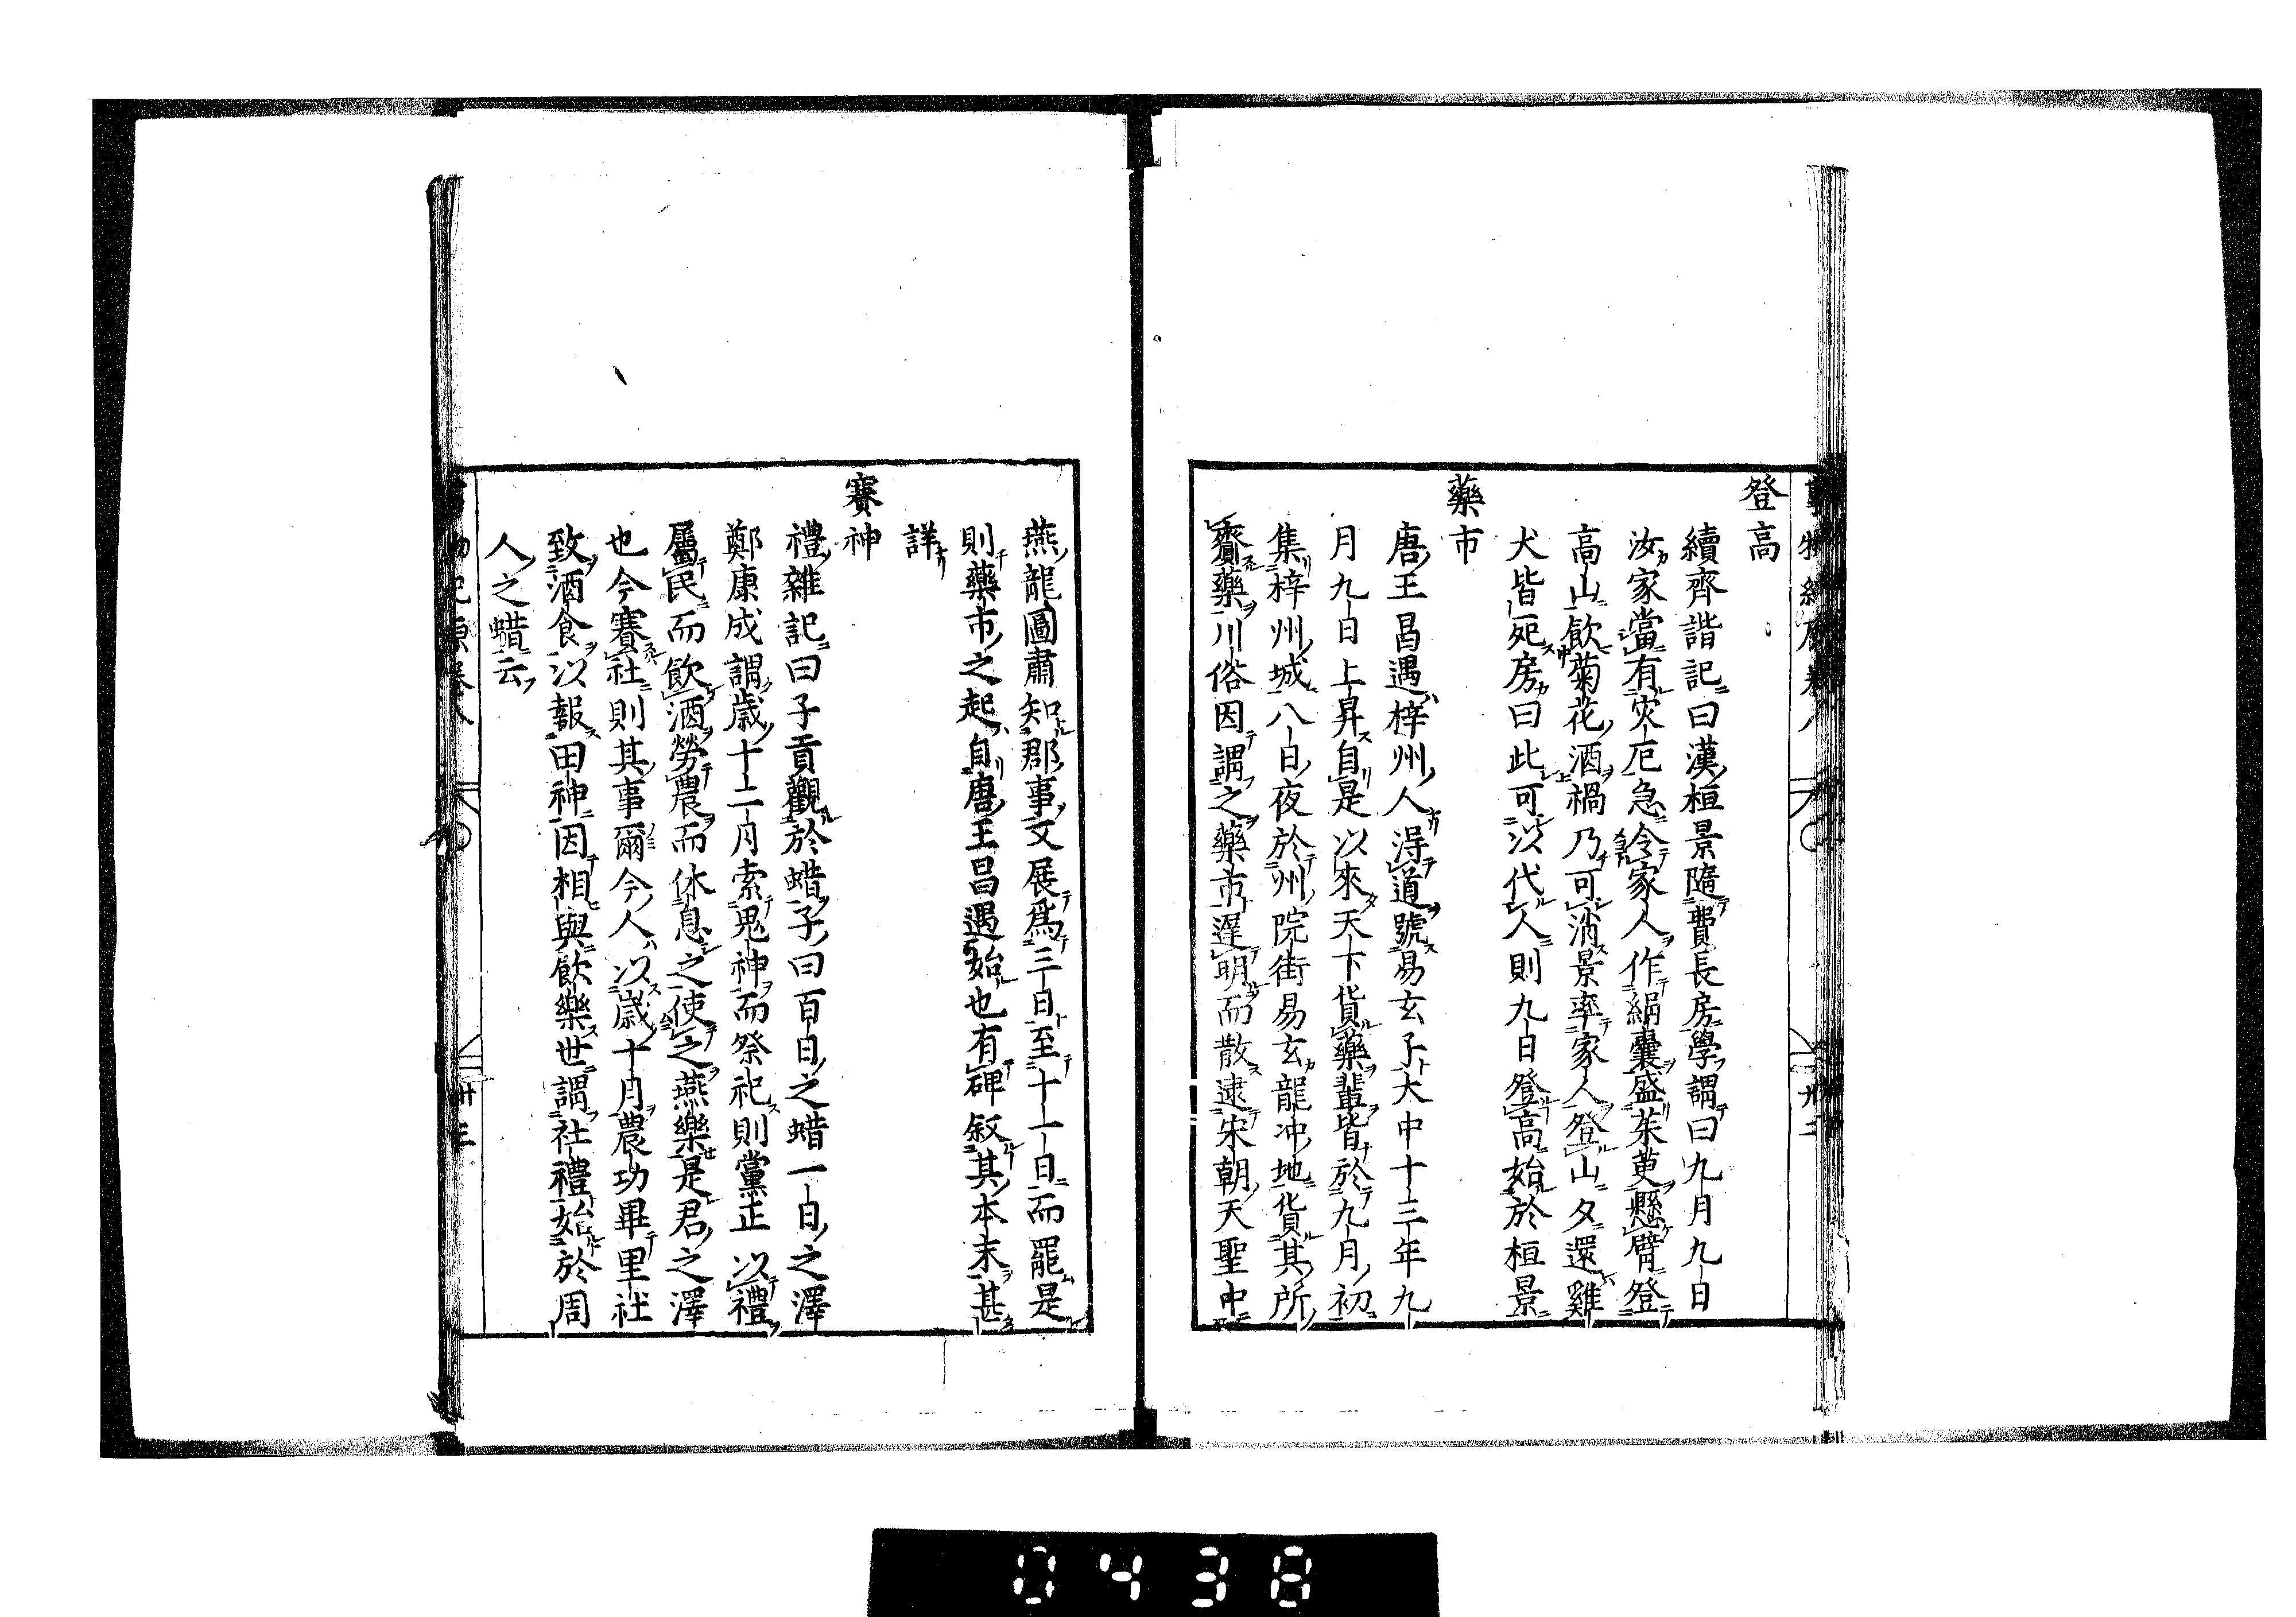 登高
續齊諧記曰漢桓景隨費長房學謂曰九月九日
汝家當有灾厄急令家人作絹囊盛茱萸懸臂登
高山飲菊花酒禍乃可消景率家人登山夕還雞
犬皆死房曰此可以代人則九日登高始於桓景
藥市
唐王昌遇梓州人得道號易玄子大中十三年九
月九日上昇自是以來天下貨藥輩皆於九月初
集梓州城八日夜於州院街易玄龍冲地貨其所
賫藥川俗因謂之藥市遲明而散逮宋朝天聖中
燕龍圖肅知郡事文展爲三日至十一日而罷是
則藥市之起自唐王昌遇始也有碑叙其本末甚
詳
賽神
禮雜記曰子貢觀於蜡子曰百日之蜡一日之澤
鄭康成謂歲十二月索鬼神而祭祀則黨正以禮
屬民而飲酒勞農而休息之使之燕樂是君之澤
也今賽社則其事爾今人以歲十月農功畢里社
致酒食以報田神因相與飲樂世謂社禮始於周
人之蜡云
0438